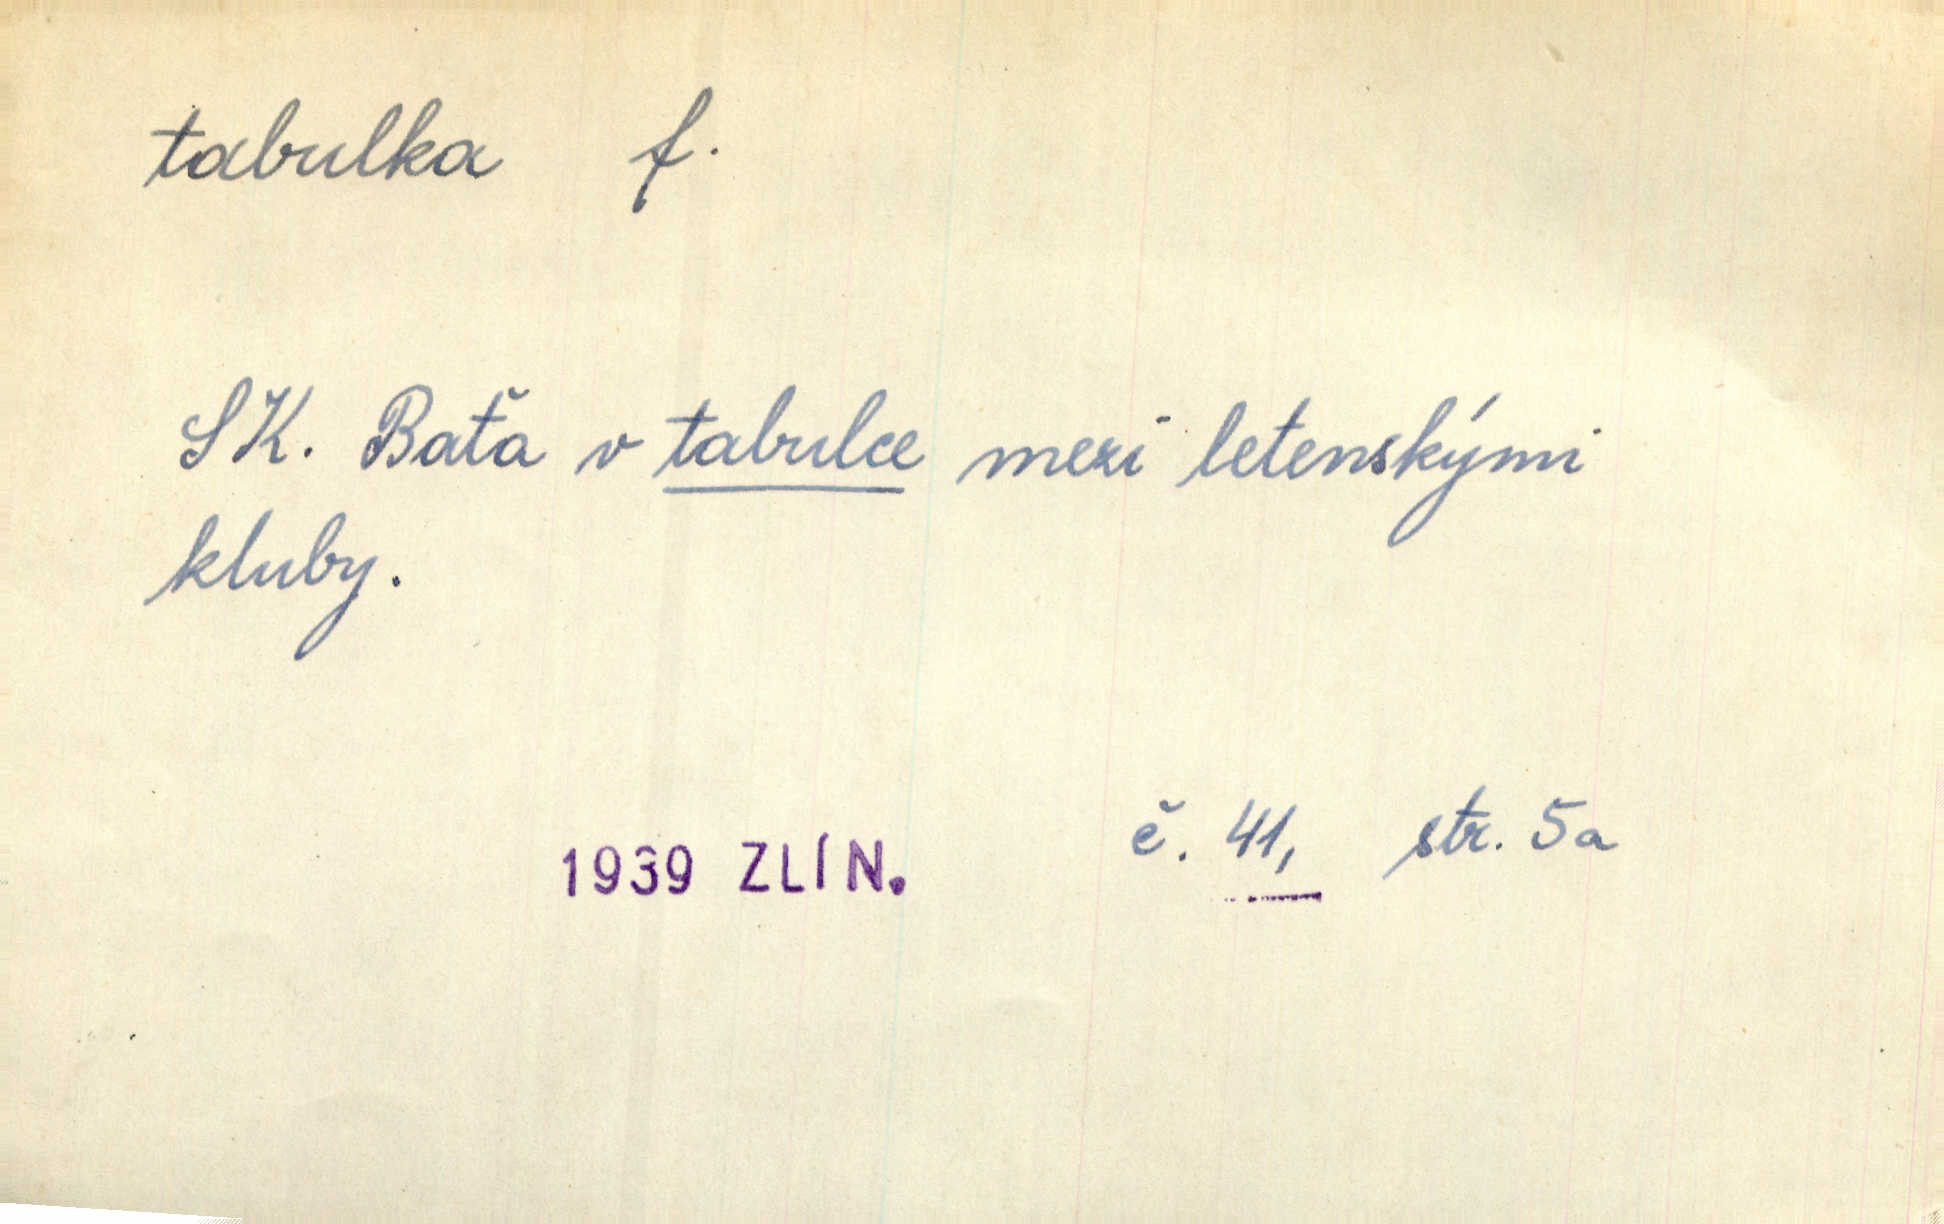 tabulka f.
SK. Baťa v tabulce mezi letenskými
kluby.
1939 ZLÍN. č. 41, str. 5a